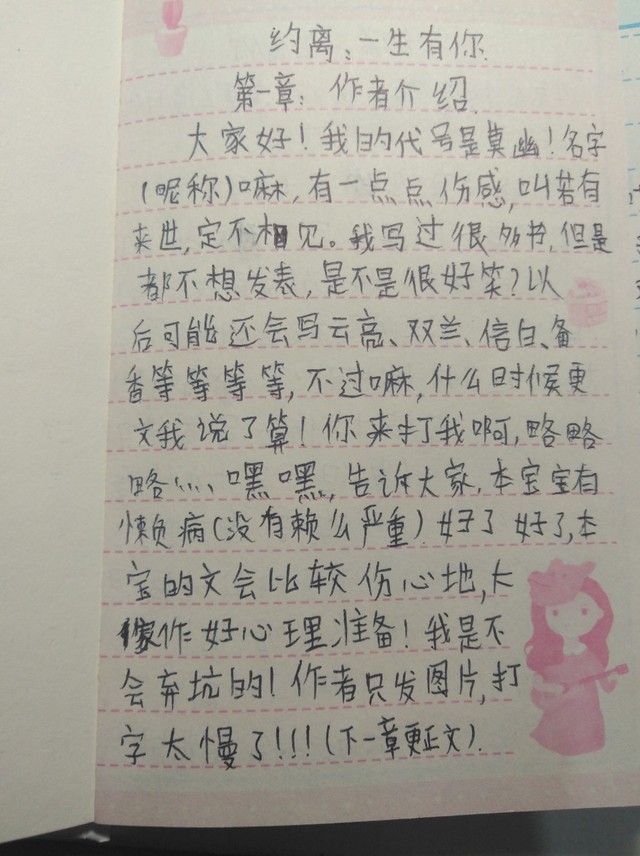 约离：一生有你.
第一章：作者介绍.
大家好！我的代号是莫幽！名字
(昵称)嘛，有一点点伤感，叫若有
来世，定不相见。我写过很多书，但是
都不想发表，是不是很好笑？以
后可能还会写云亮、双兰、信白、备
香等等等等，不过嘛，什么时候更
文我说了算！你来打我啊，略略
略灬、嘿嘿，告诉大家，本宝宝有
懒病(没有赖么严重)好了好了，本
宝的文会比较伤心地，大
家作好心理准备！我是不
会弃坑的！作者只发图片，打
字太慢了!!!(下一章更正文).